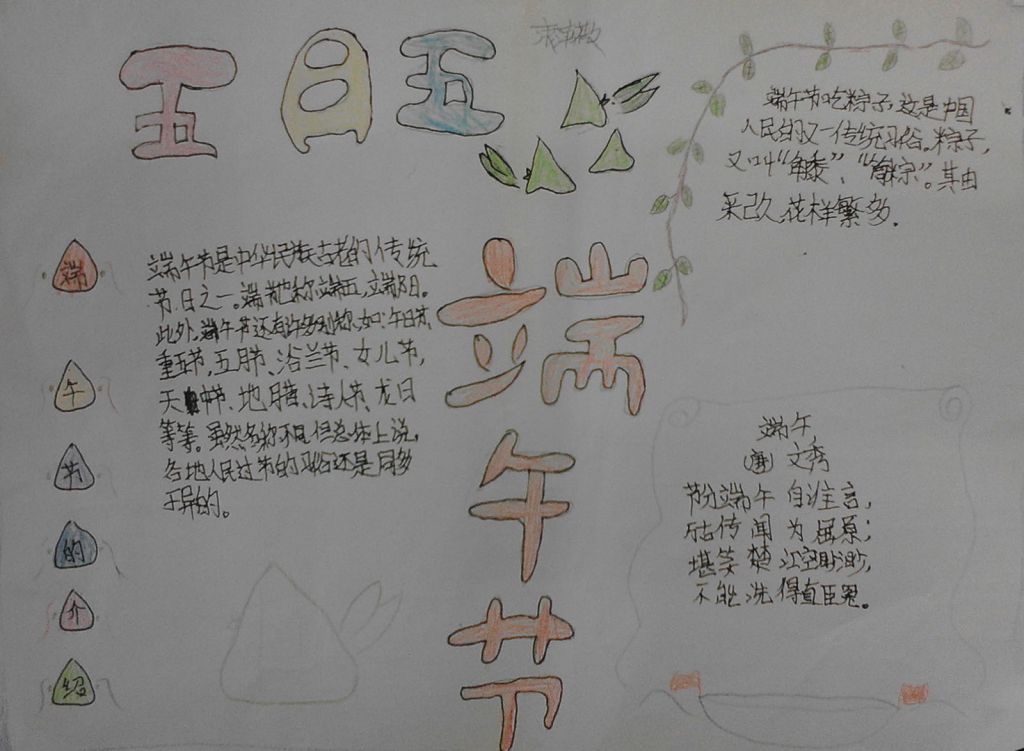 五月五
端午节吃粽子,这是中国
人民的又一传统习俗。粽子,
又叫“角黍”、“筒粽”。其由
来已久,花样繁多.
端午节的介绍
端午节是中华民族古老的传统
节日之一。端午也称端五,端阳。
此外,端午节还有许多别称,如:午日节、
重五节,五月节、浴兰节、女儿节,
天中节、地腊、诗人节、龙日
等等。虽然名称不同,但总体上说,
各地人民过节的习俗还是同多
于异的。
端午节
端午
(唐) 文秀
节分端午自谁言,
万古传闻为屈原;
堪笑楚江空渺渺,
不能洗得直臣冤。